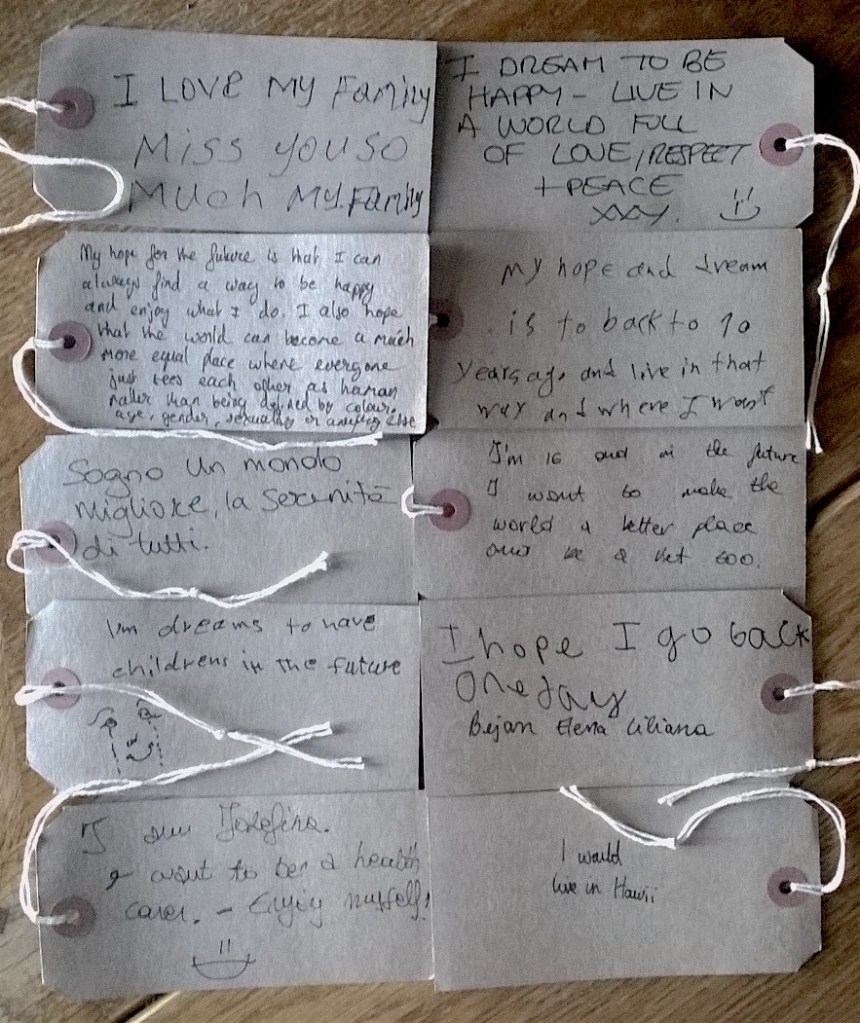 I LOVE MY Family
Miss you so
Much My Family
I DREAM TO BE
HAPPY - LIVE IN
A WORLD FULL
OF LOVE, RESPECT
+ PEACE
xxxy.
My hope for the future is that I can
always find a way to be happy
and enjoy what I do. I also hope
that the world can become a much
more equal place where everyone
just sees each other as human
rather than being defined by colour,
age, gender, sexuality or anything else
My hope and dream
is to back to 10
years ago and live in that
way and where I want
Sogno un mondo
migliore, la serenità
di tutti.
I'm 16 and in the future
I want to make the
world a better place
and be a vet too.
I'm dreams to have
childrens in the future
I hope I go back
one day
Bejan Elena Liliana
I am Josefina.
I want to be a health
carer. - Enjoy myself!
I would
live in Hawii